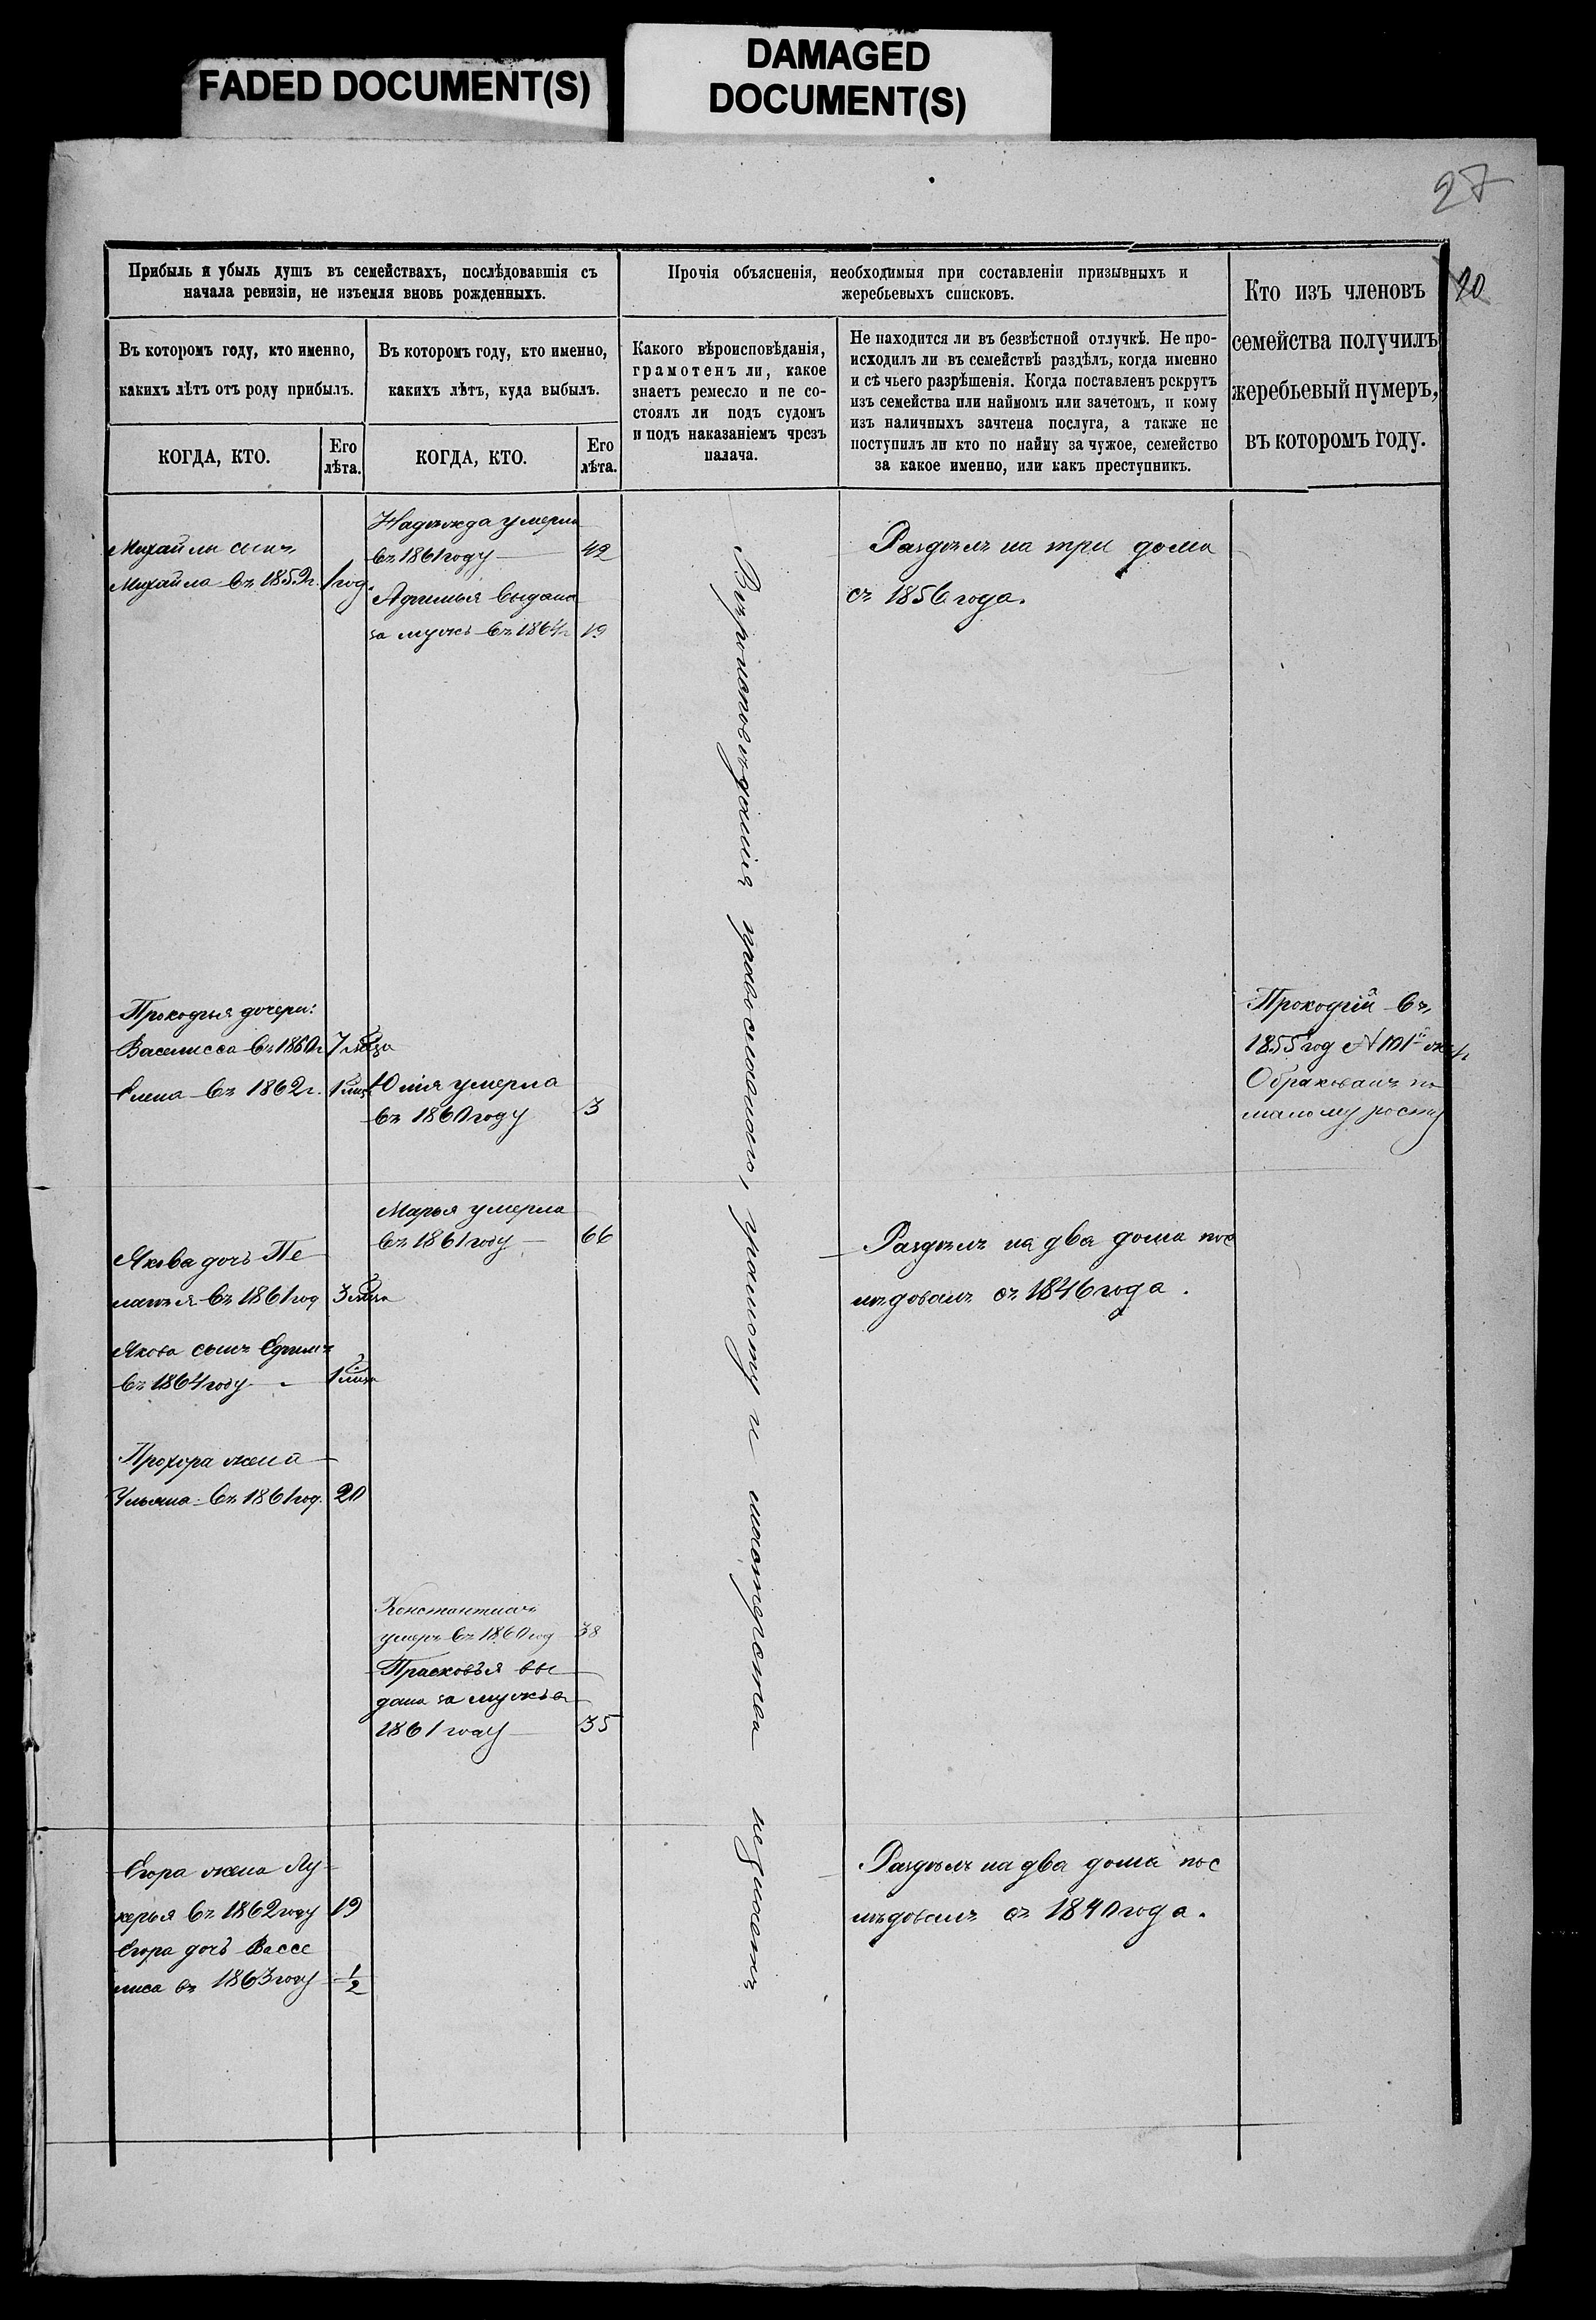 FADED DOCUMENT(S)
DAMAGED
DOCUMENT(S)
27
Прибыль и убыль душъ въ семействахъ, послѣдовавшія съ
начала ревизіи, не изъемля вновь рожденныхъ.
Въ которомъ году, кто именно,
какихъ лѣтъ отъ роду прибылъ.
КОГДА, КТО.
Его
лѣта.
Въ которомъ году, кто именно,
какихъ лѣтъ, куда выбылъ.
КОГДА, КТО.
Его
лѣта.
Прочія объясненія, необходимыя при составленіи призывныхъ и
жеребьевыхъ списковъ.
Какого вѣроисповѣданія,
грамотенъ ли, какое
знаетъ ремесло и не со-
стоялъ ли подъ судомъ
и подъ наказаніемъ чрезъ
палача.
Не находится ли въ безвѣстной отлучкѣ. Не про-
исходилъ ли въ семействѣ раздѣлъ, когда именно
и съ чьего разрѣшенія. Когда поставленъ рекрутъ
изъ семейства или наймомъ или зачетомъ, и кому
изъ наличныхъ зачтена послуга, а также не
поступилъ ли кто по найму за чужое, семейство
за какое именно, или какъ преступникъ.
Кто изъ членовъ
семейства получилъ
жеребьевый нумеръ,
въ которомъ году.
20
Михайлы сынъ
Михайла въ 1859г. 1 год.
Надежда умерла
въ 1861 году 42
Афимья выдана
за мужъ въ 1864г 19
Раздѣлъ на три дома
съ 1856 года.
Прокофья дочери:
Васелисса въ 1860г 7 мѣца
Елена въ 1862г. 1 мѣц.
Юлія умерла
въ 1860 году 3
Прокофій въ
1855 год № 101й
Обракованъ по
малому росту
Марья умерла
въ 1861 году 66
Якова дочь Пе
лагѣя въ 1861 год 3 мѣца
Якова сынъ Ефимъ
въ 1864 году 1 мѣца
Раздѣлъ на два дома пос
лѣдовалъ съ 1846 года.
Прохора жена
Ульяна въ 1861 год. 20
Константинъ
умеръ въ 1860 год 38
Прасковья вы
дана за мужъ въ
1861 году 35
Егора жена Лу
керья въ 1862 году 19
Егора дочь Вассе
лиса въ 1863 году 1/2
Раздѣлъ на два дома пос
лѣдовалъ съ 1840 года.
Вѣроисповѣданія православнаго, грамоту и мастерства незнаетъ